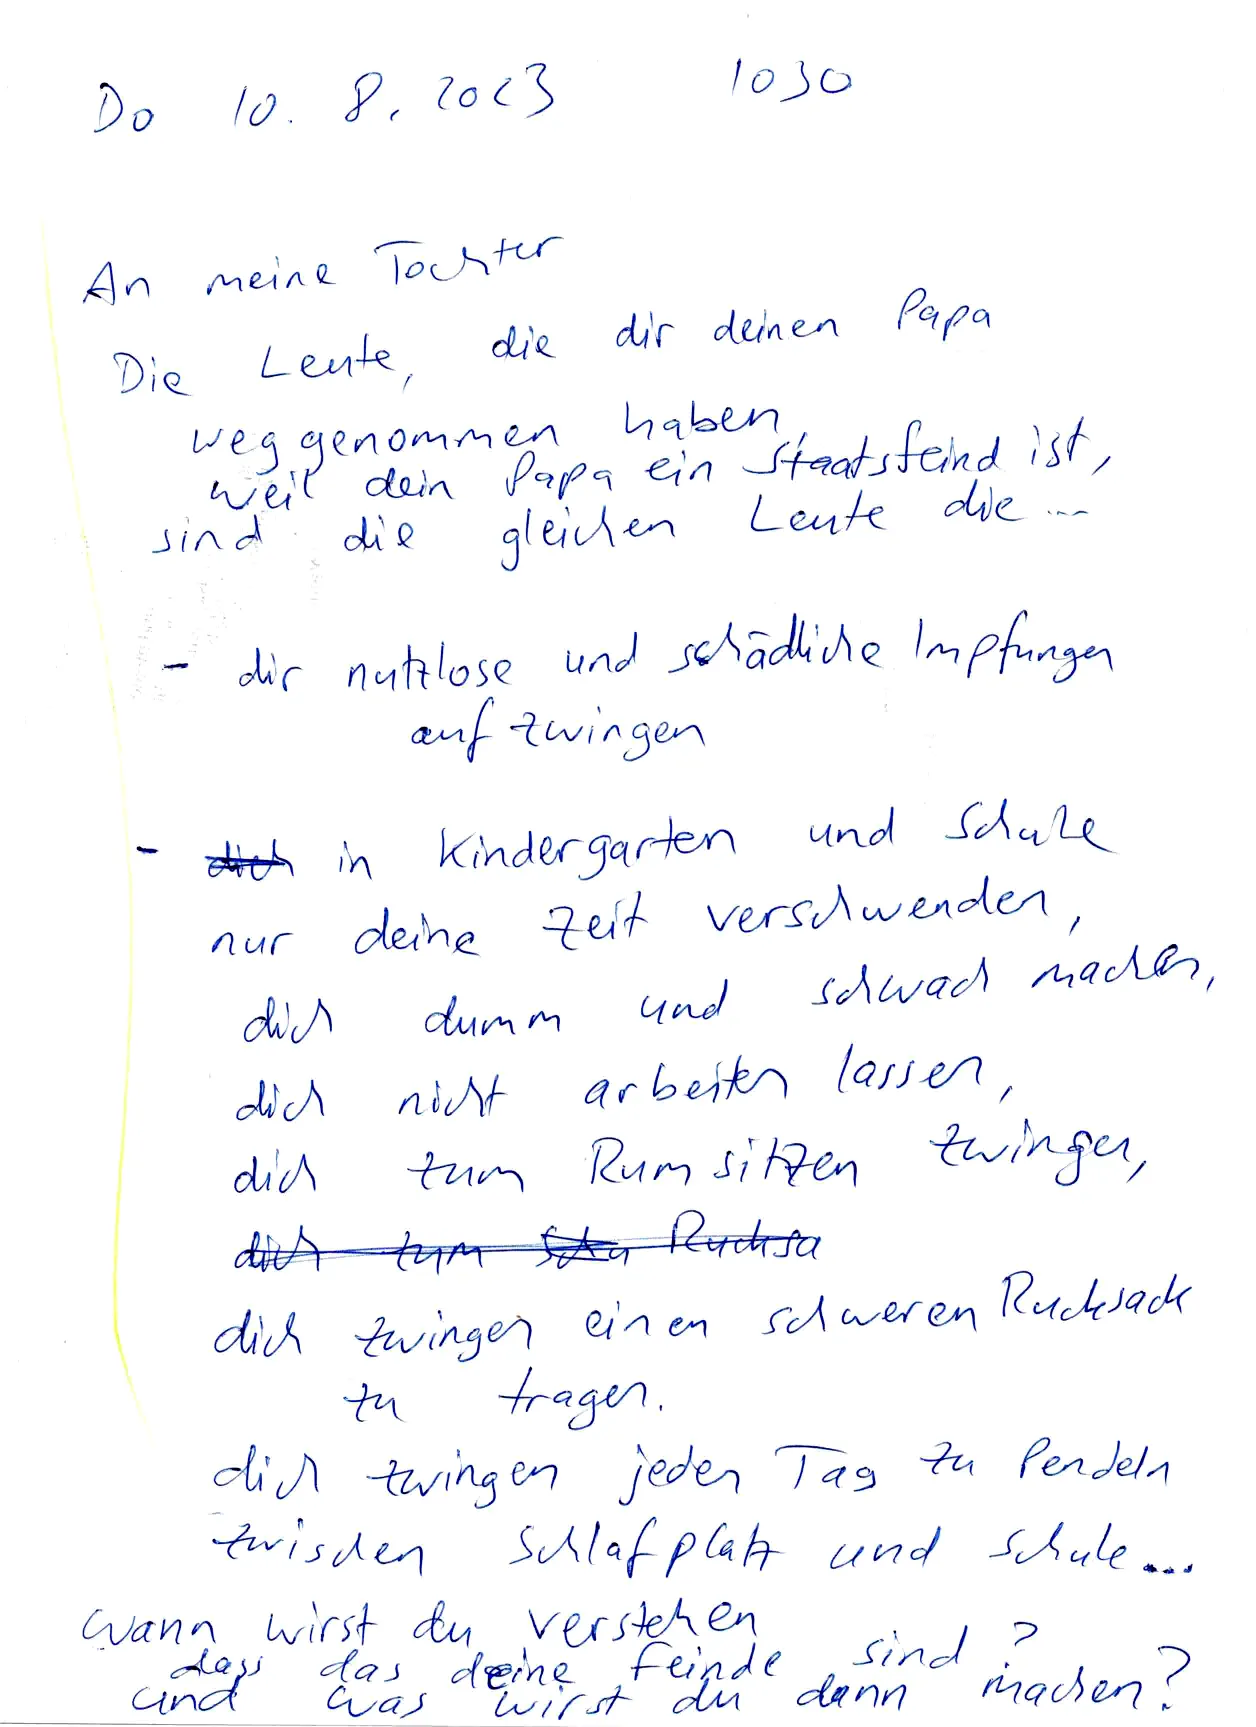 Do 10. 8. 2023 1030
An meine Tochter
Die Leute, die dir deinen Papa
weggenommen haben,
weil dein Papa ein Staatsfeind ist,
sind die gleichen Leute die ...
- dir nutzlose und schädliche Impfungen
aufzwingen
- dich in Kindergarten und Schule
nur deine Zeit verschwenden,
dich dumm und schwach machen,
dich nicht arbeiten lassen,
dich zum Rumsitzen zwingen,
dich zum Rucksa
dich zwingen einen schweren Rucksack
zu tragen.
dich zwingen jeden Tag zu Pendeln
zwischen Schlafplatz und Schule...
wann wirst du verstehen
dass das deine Feinde sind?
und was wirst du dann machen?